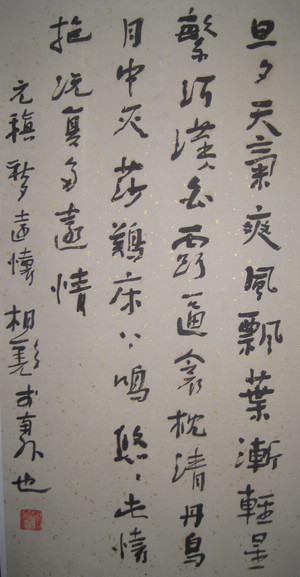 旦夕天氣爽風飄葉漸輕星
繁河漢白露逼衾枕清丹鳥
月中灭莎鷄床下鳴悠、此懷
抱況復多遙情
元稹秋夕遠懷 相 也